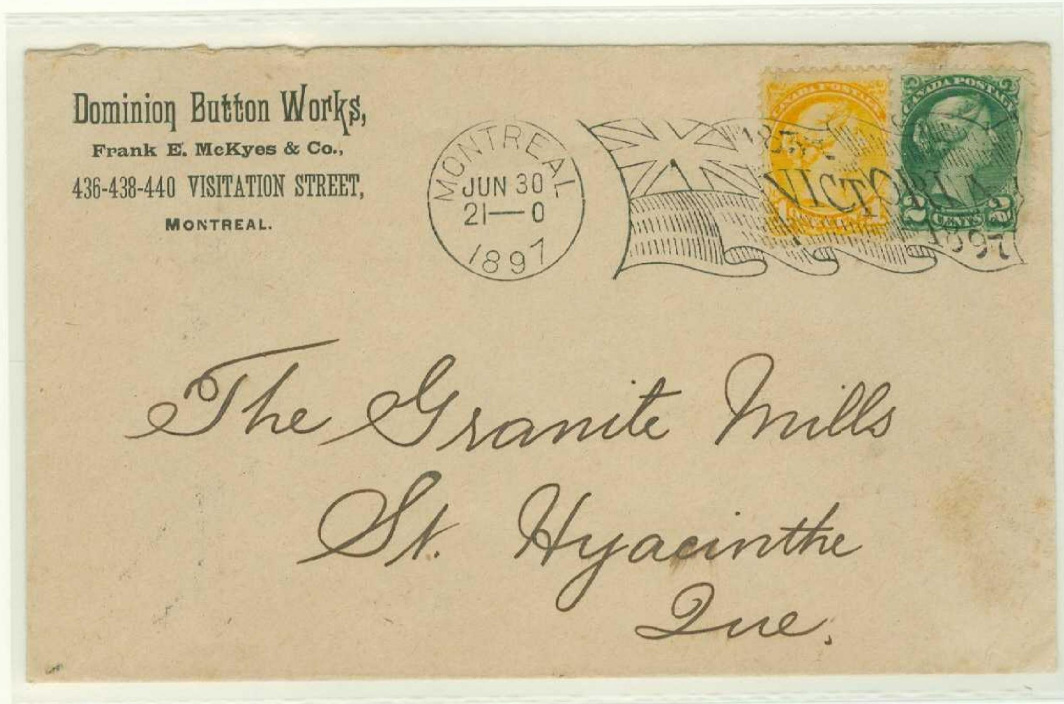 Dominion Button Works,
Frank E. McKyes & Co.,
436-438-440 VISITATION STREET,
MONTREAL.
MONTREAL
JUN 30
21—0
1897
VICTORIA
1897
CANADA POSTAGE
CANADA POSTAGE
2 CENTS 2
The Granite Mills
St. Hyacinthe
Que.